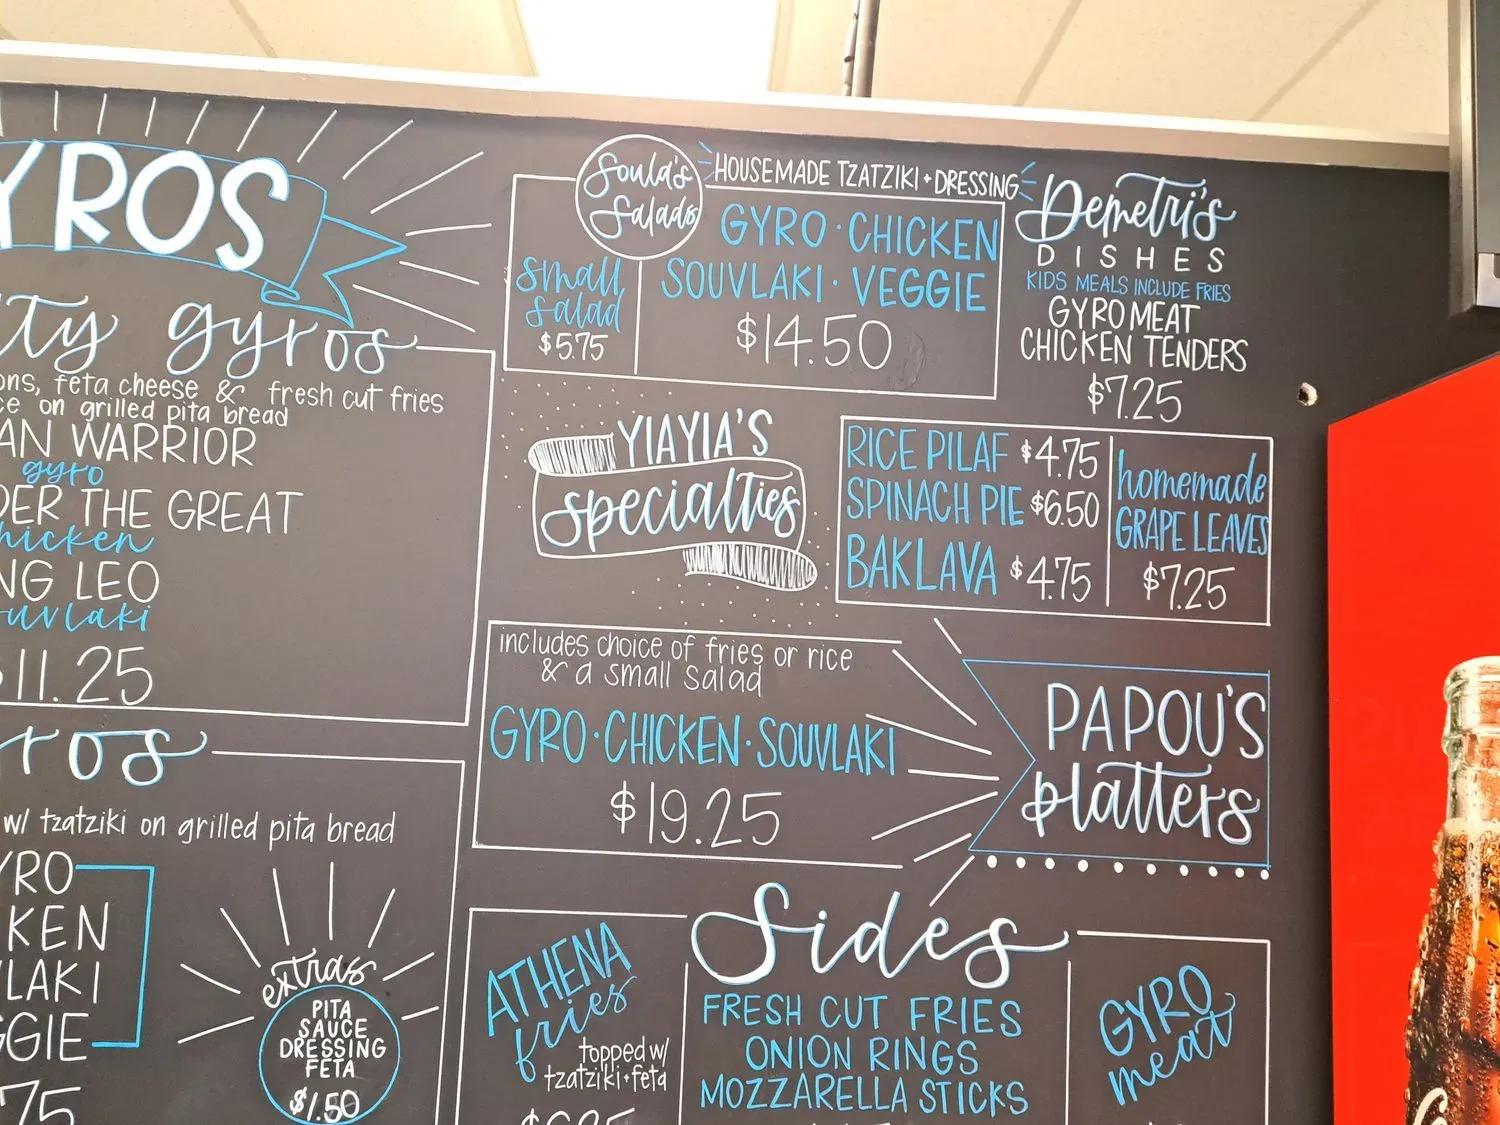 YROS
ty gyros
ons, feta cheese & fresh cut fries
ce on grilled pita bread
AN WARRIOR
gyro
DER THE GREAT
hicken
NG LEO
ouvlaki
$11.25
ros
w/ tzatziki on grilled pita bread
YRO
KEN
LAKI
GGIE
75
extras
PITA
SAUCE
DRESSING
FETA
$1.50
Soula's
Salads
HOUSEMADE TZATZIKI + DRESSING
small
salad
$5.75
GYRO · CHICKEN
SOUVLAKI · VEGGIE
$14.50
Demetri's
DISHES
KIDS MEALS INCLUDE FRIES
GYRO MEAT
CHICKEN TENDERS
$7.25
YIAYIA'S
specialties
RICE PILAF $4.75
SPINACH PIE $6.50
BAKLAVA $4.75
homemade
GRAPE LEAVES
$7.25
includes choice of fries or rice
& a small salad
GYRO · CHICKEN · SOUVLAKI
$19.25
PAPOU'S
platters
Sides
ATHENA
fries
topped w/
tzatziki + feta
FRESH CUT FRIES
ONION RINGS
MOZZARELLA STICKS
GYRO
meat